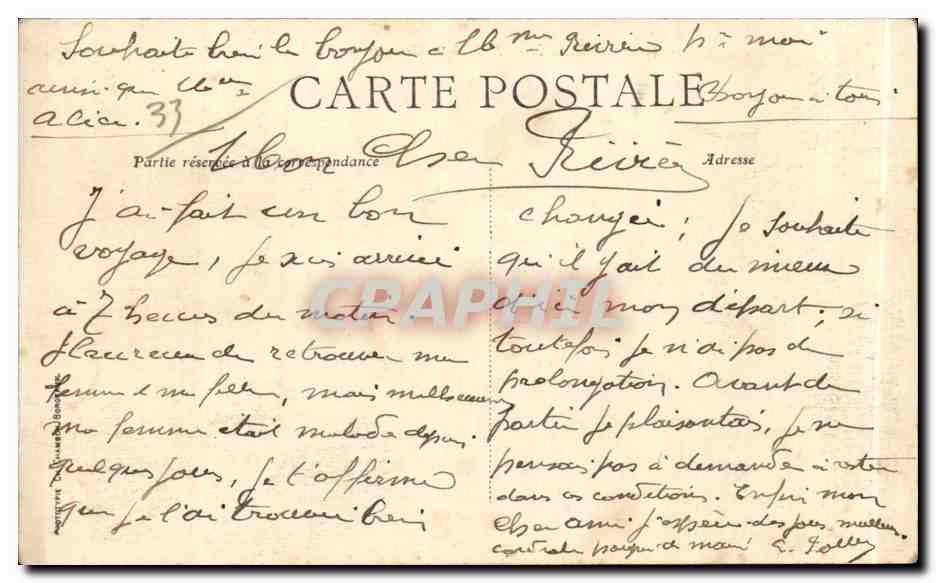 Souhaite bien le bonjour à Mme Rivière pr moi
ainsi que Melle
Alice. 33
CARTE POSTALE
Bonjour à tous
Partie réservée à la correspondance
Adresse
Mon Cher Rivière
J'ai fait un bon
voyage, je suis arrivé
à 7 heures du matin.
Heureux de retrouver ma
femme & ma fille, mais malheureus
ma femme était malade depuis
quelques jours, je t'affirme
que je l'ai trouvée bien
changée; je souhaite
qu'il y ait du mieux
d'ici mon départ, si
toutefois je n'ai pas de
prolongation. Avant de
partir je plaisantais, je ne
pensais pas à demander à rester
dans ces conditions. Enfin mon
cher ami j'espère des jours meilleurs
cordiale poignée de main E.
PHOTOTYPIE BORDEAUX
CPAPHIL